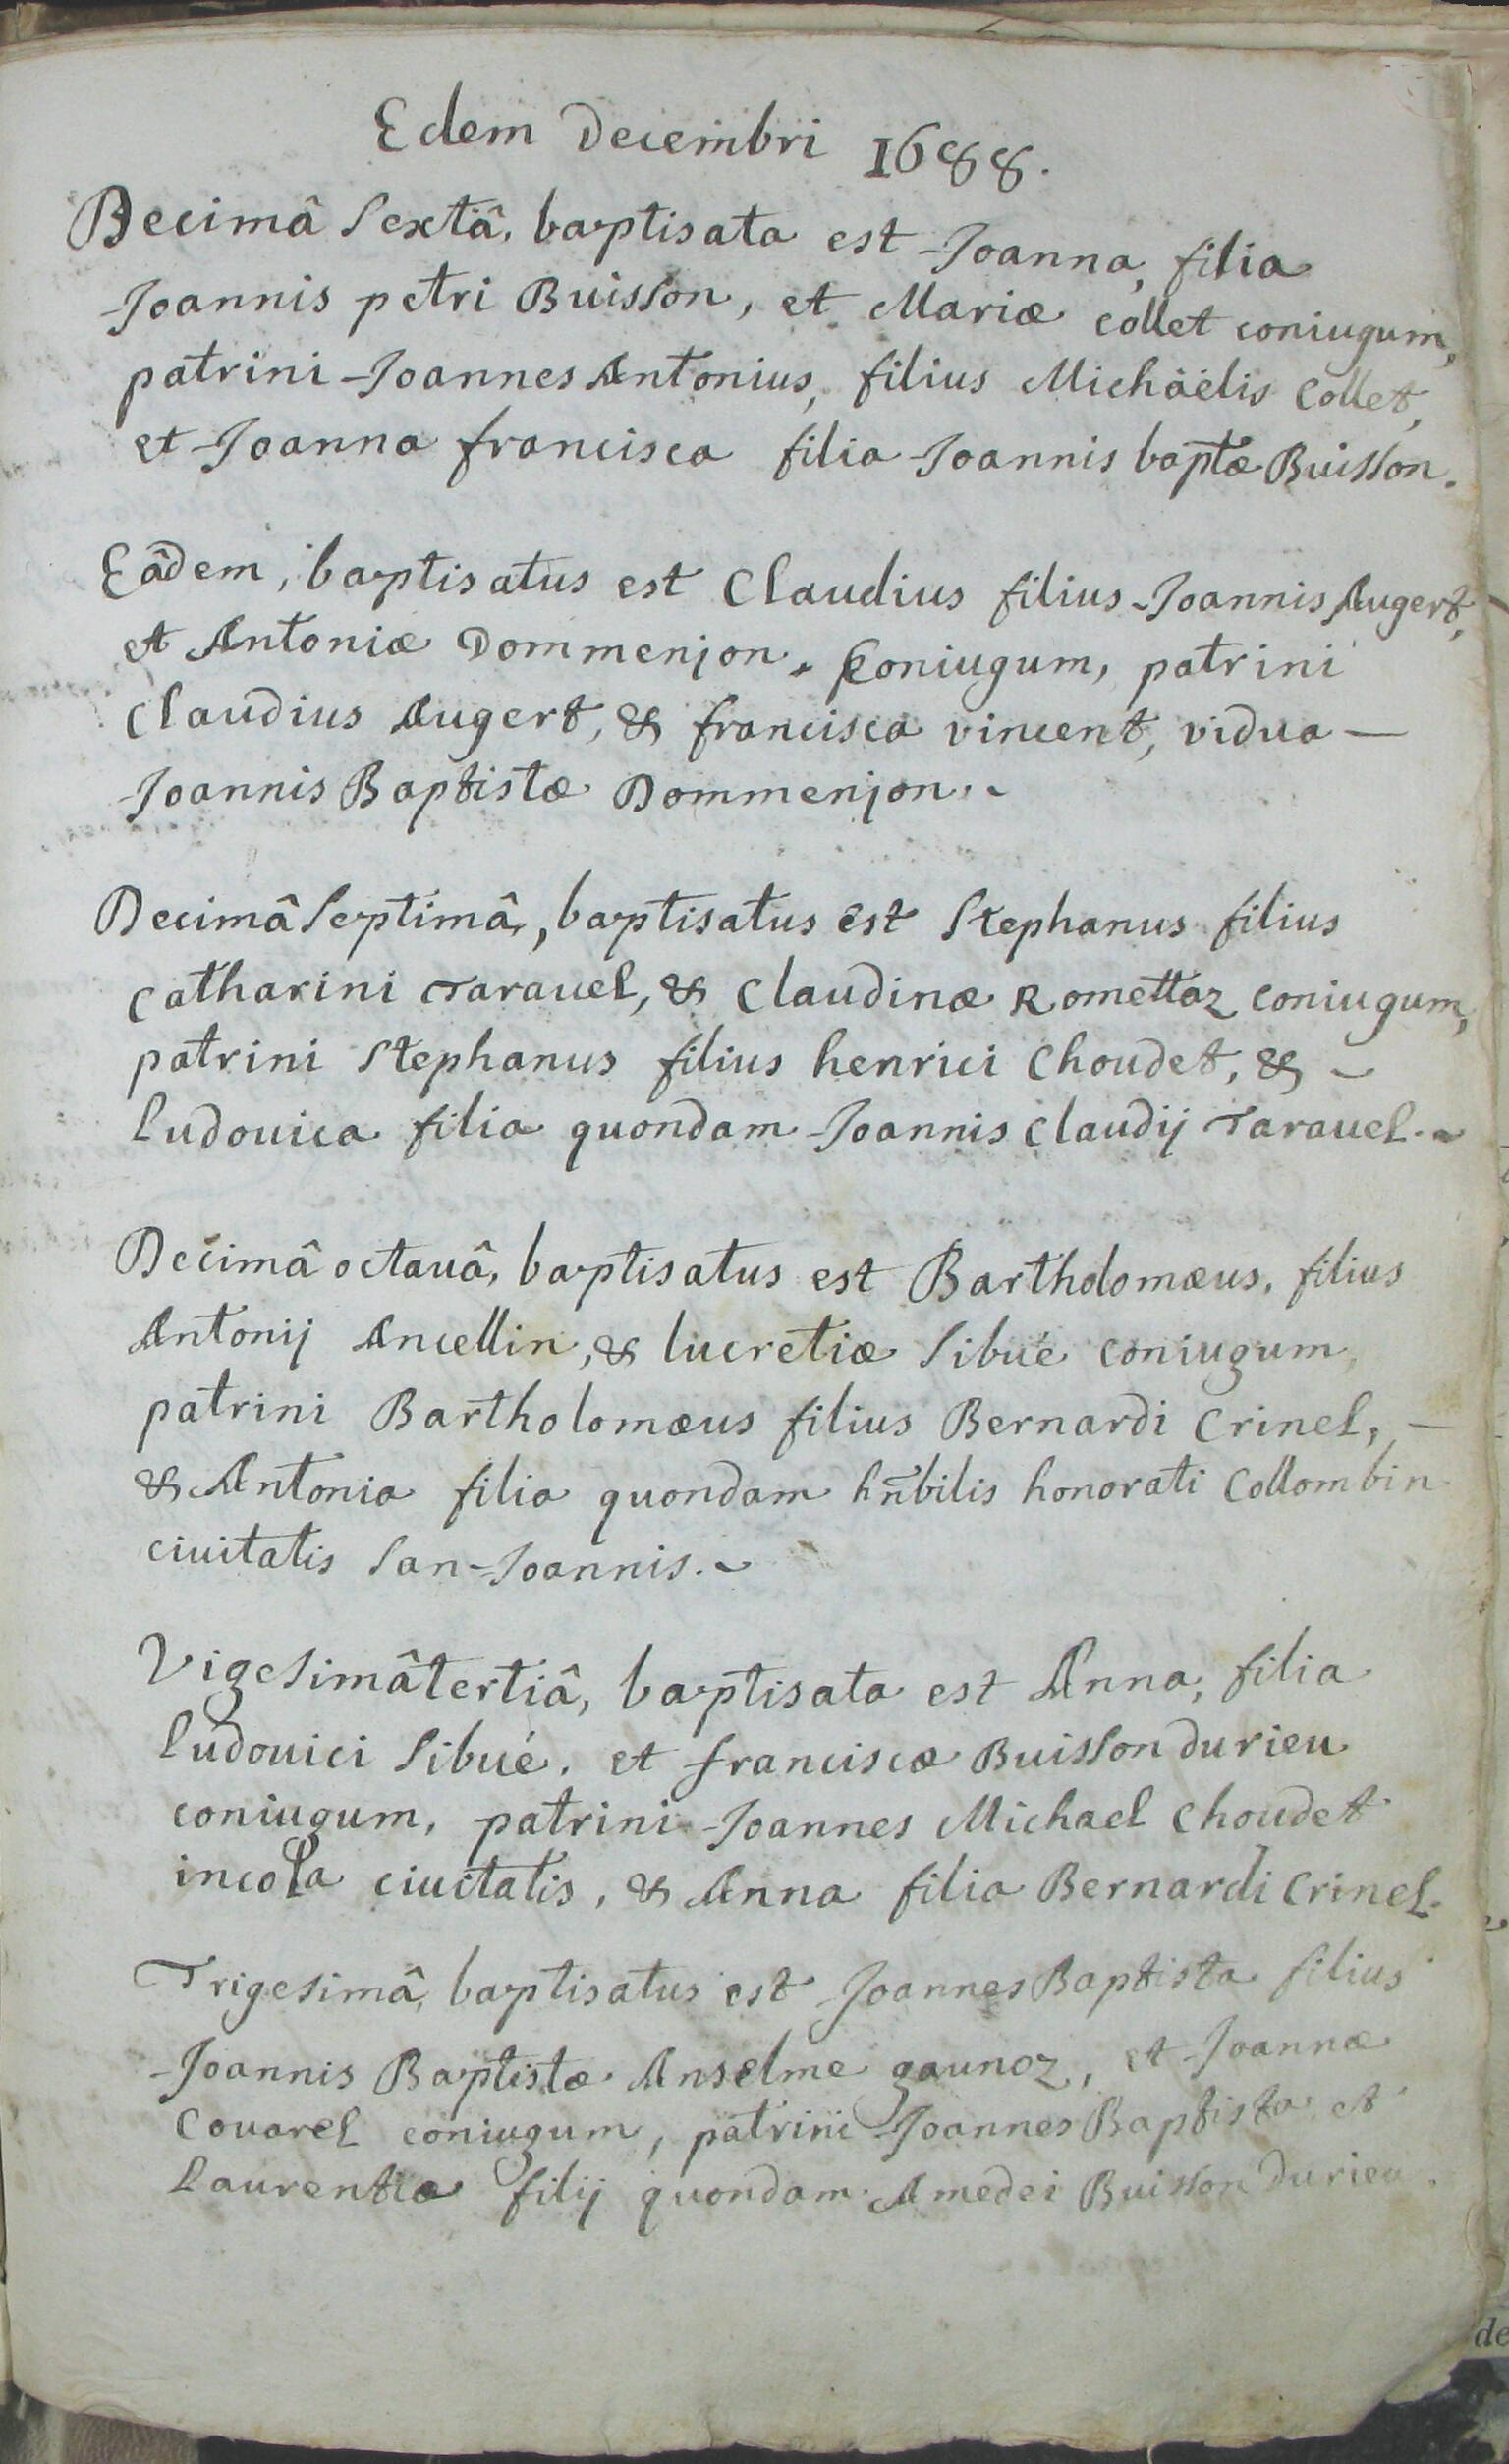 Edem Decembri 1688.
Decimâ Sextâ, baptisata est Joanna, filia
Joannis petri Buisson, et Mariæ collet coniugum,
patrini Joannes Antonius, filius Michäelis Collet,
et Joanna francisca filia Joannis baptæ Buisson.
Eâdem, baptisatus est Claudius filius Joannis Augert,
et Antoniæ Dommenjon, Coniugum, patrini
Claudius Augert, & francisca vincent, vidua —
Joannis Baptistæ Dommenjon.
Decimâ Septimâ, baptisatus est Stephanus filius
Catharini Tarauel, & Claudinæ Romettaz coniugum,
patrini Stephanus filius henrici Choudet, &
Ludouica filia quondam Joannis Claudij Tarauel.
Decimâ octauâ, baptisatus est Bartholomæus, filius
Antonij Ancellin, & lucretiæ Sibué coniugum,
patrini Bartholomæus filius Bernardi Crinel, —
& Antonia filia quondam hñbilis honorati Collombin
ciuitatis San-Joannis.
Vigesimâtertiâ, baptisata est Anna, filia
Ludouici Sibué, et franciscæ Buisson durieu
coniugum, patrini Joannes Michael Choudet
incola ciuitatis, & Anna filia Bernardi Crinel.
Trigesimâ, baptisatus est Joannes Baptista filius
Joannis Baptistæ Anselme gaunoz, et Joannæ
Couarel coniugum, patrini Joannes Baptista et
Laurentia filij quondam Amedei Buisson Durieu.